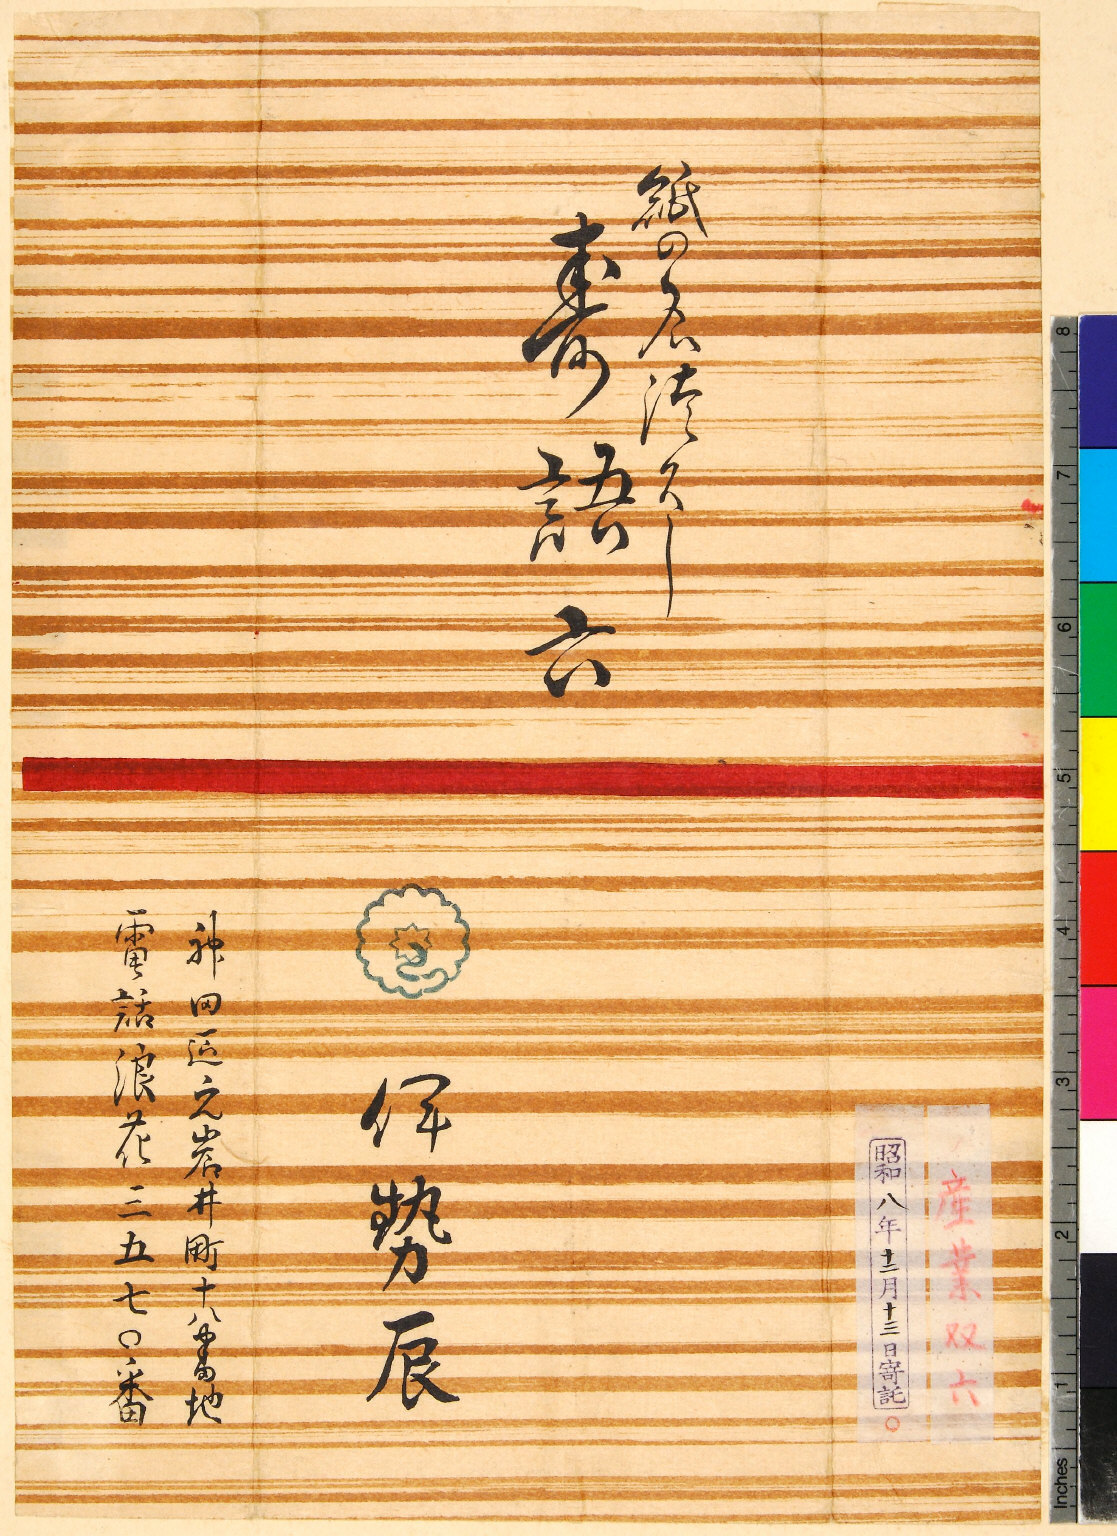 紙の名津久し
壽語六
伊勢辰
神田区元岩井町十八番地
電話浪花三五七〇番
産業双六
昭和八年十二月十三日寄託
Inches 1 2 3 4 5 6 7 8